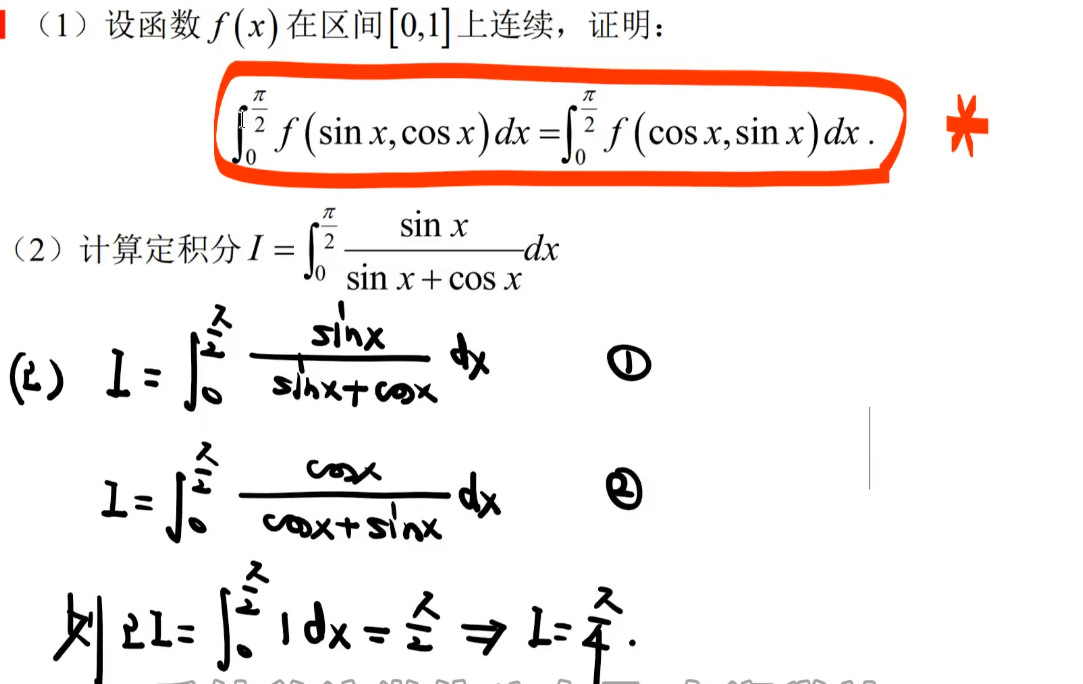 (1) 设函数 f(x) 在区间[0,1]上连续，证明：
∫₀^{π/2} f(sin x, cos x)dx = ∫₀^{π/2} f(cos x, sin x)dx. *
(2) 计算定积分 I = ∫₀^{π/2} \frac{sin x}{sin x + cos x} dx
(2) I = ∫₀^{π/2} \frac{sinx}{sinx+cosx} dx ①
I = ∫₀^{π/2} \frac{cosx}{cosx+sinx} dx ②
则 2I = ∫₀^{π/2} 1 dx = \frac{π}{2} ⇒ I = \frac{π}{4}.